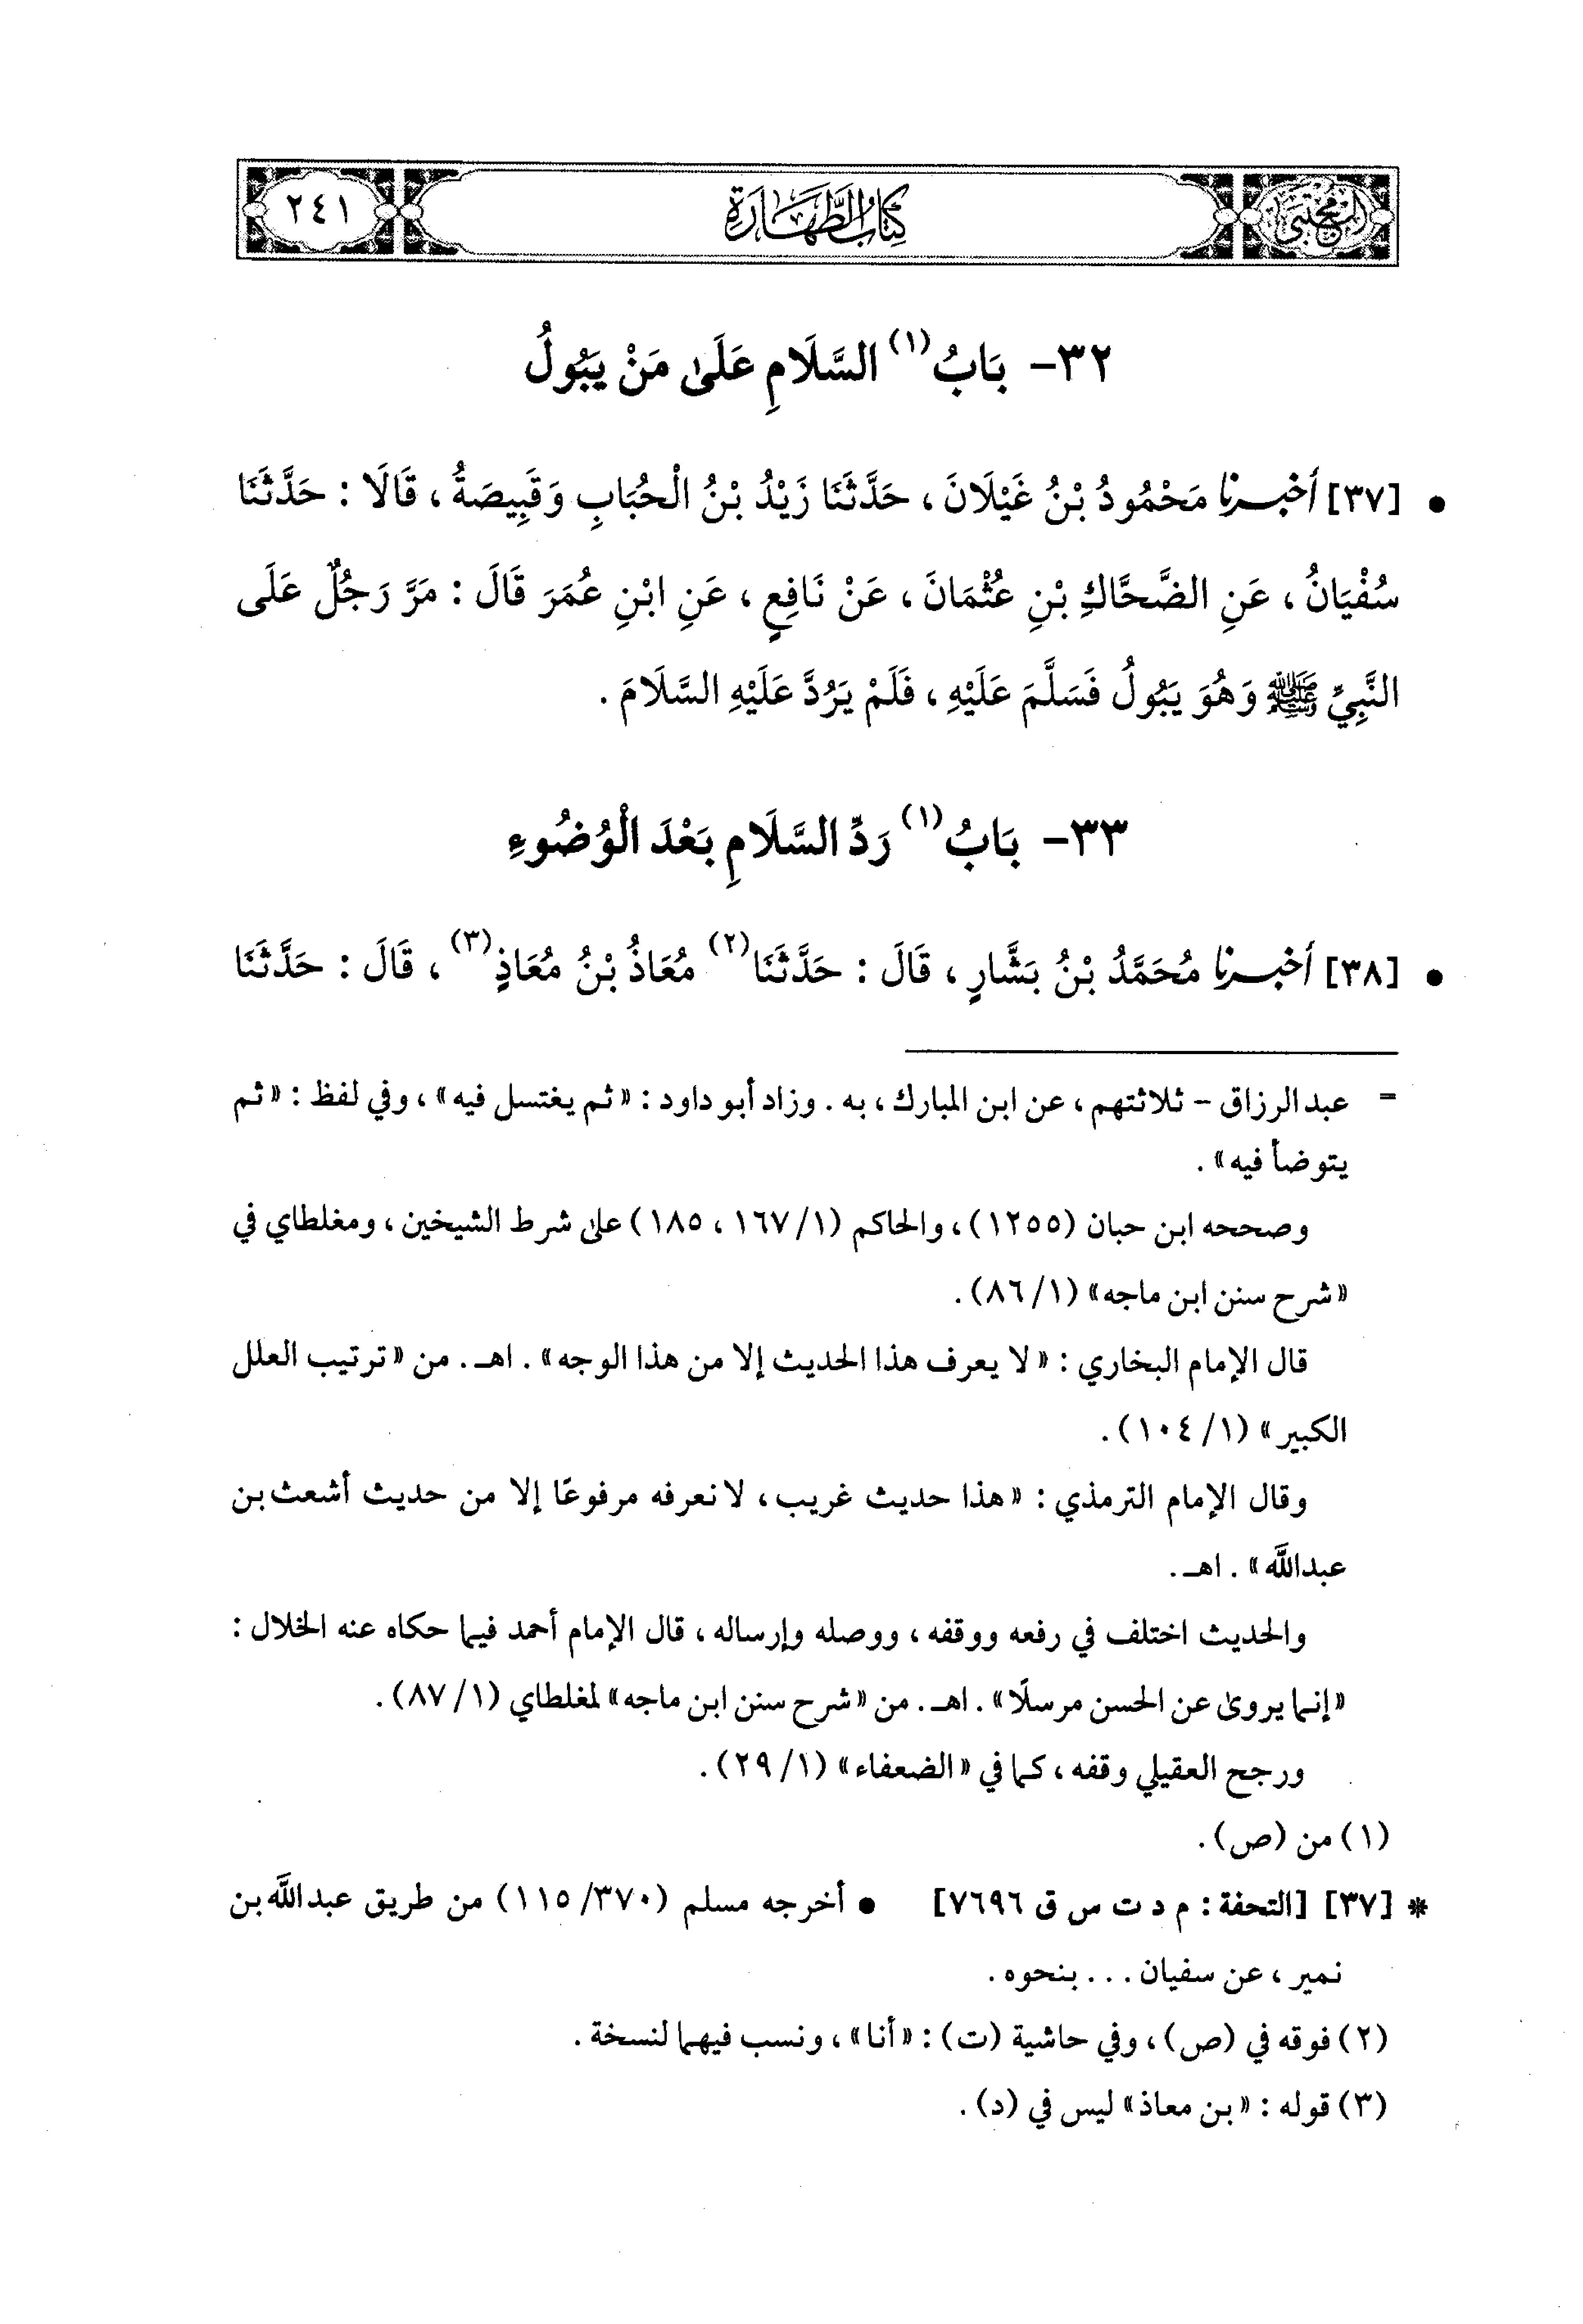 المجتبى كِتَابُ الطَّهَارَةِ ٢٤١
٣٢- بَابُ (١) السَّلَامِ عَلَىٰ مَنْ يَبُولُ
• [٣٧] أخبرنا مَحْمُودُ بْنُ غَيْلَانَ ، حَدَّثَنَا زَيْدُ بْنُ الْحُبَابِ وَقَبِيصَةُ ، قَالَا : حَدَّثَنَا
سُفْيَانُ ، عَنِ الضَّحَّاكِ بْنِ عُثْمَانَ ، عَنْ نَافِعٍ ، عَنِ ابْنِ عُمَرَ قَالَ : مَرَّ رَجُلٌ عَلَى
النَّبِيِّ ﷺ وَهُوَ يَبُولُ فَسَلَّمَ عَلَيْهِ ، فَلَمْ يَرُدَّ عَلَيْهِ السَّلَامَ .
٣٣- بَابُ (١) رَدِّ السَّلَامِ بَعْدَ الْوُضُوءِ
• [٣٨] أخبرنا مُحَمَّدُ بْنُ بَشَّارٍ ، قَالَ : حَدَّثَنَا (٢) مُعَاذُ بْنُ مُعَاذٍ (٣) ، قَالَ : حَدَّثَنَا
= عبدالرزاق - ثلاثتهم ، عن ابن المبارك ، به . وزاد أبو داود : «ثم يغتسل فيه» ، وفي لفظ : «ثم
يتوضأ فيه» .
وصححه ابن حبان (١٢٥٥) ، والحاكم (١/ ١٦٧ ، ١٨٥) علىٰ شرط الشيخين ، ومغلطاي في
«شرح سنن ابن ماجه» (١/ ٨٦) .
قال الإمام البخاري : «لا يعرف هذا الحديث إلا من هذا الوجه» . اهـ . من «ترتيب العلل
الكبير» (١/ ١٠٤) .
وقال الإمام الترمذي : «هذا حديث غريب ، لا نعرفه مرفوعًا إلا من حديث أشعث بن
عبدالله» . اهـ .
والحديث اختلف في رفعه ووقفه ، ووصله وإرساله ، قال الإمام أحمد فيما حكاه عنه الخلال :
«إنما يروىٰ عن الحسن مرسلًا» . اهـ . من «شرح سنن ابن ماجه» لمغلطاي (١/ ٨٧) .
ورجح العقيلي وقفه ، كما في «الضعفاء» (١/ ٢٩) .
(١) من (ص) .
* [٣٧] [التحفة : م د ت س ق ٧٦٩٦] • أخرجه مسلم (٣٧٠/ ١١٥) من طريق عبدالله بن
نمير ، عن سفيان . . . بنحوه .
(٢) فوقه في (ص) ، وفي حاشية (ت) : «أنا» ، ونسب فيهما لنسخة .
(٣) قوله : «بن معاذ» ليس في (د) .